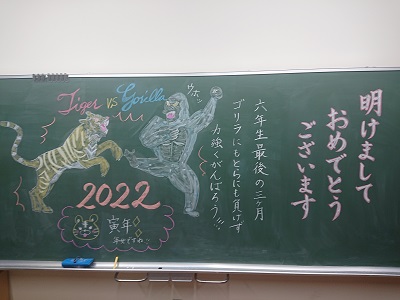 明けまして
おめでとう
ございます
六年生最後の三ヶ月
ゴリラにもとらにも負けず
力強くがんばろう!!!
Tiger VS Gorilla
ウホッ
2022
寅年